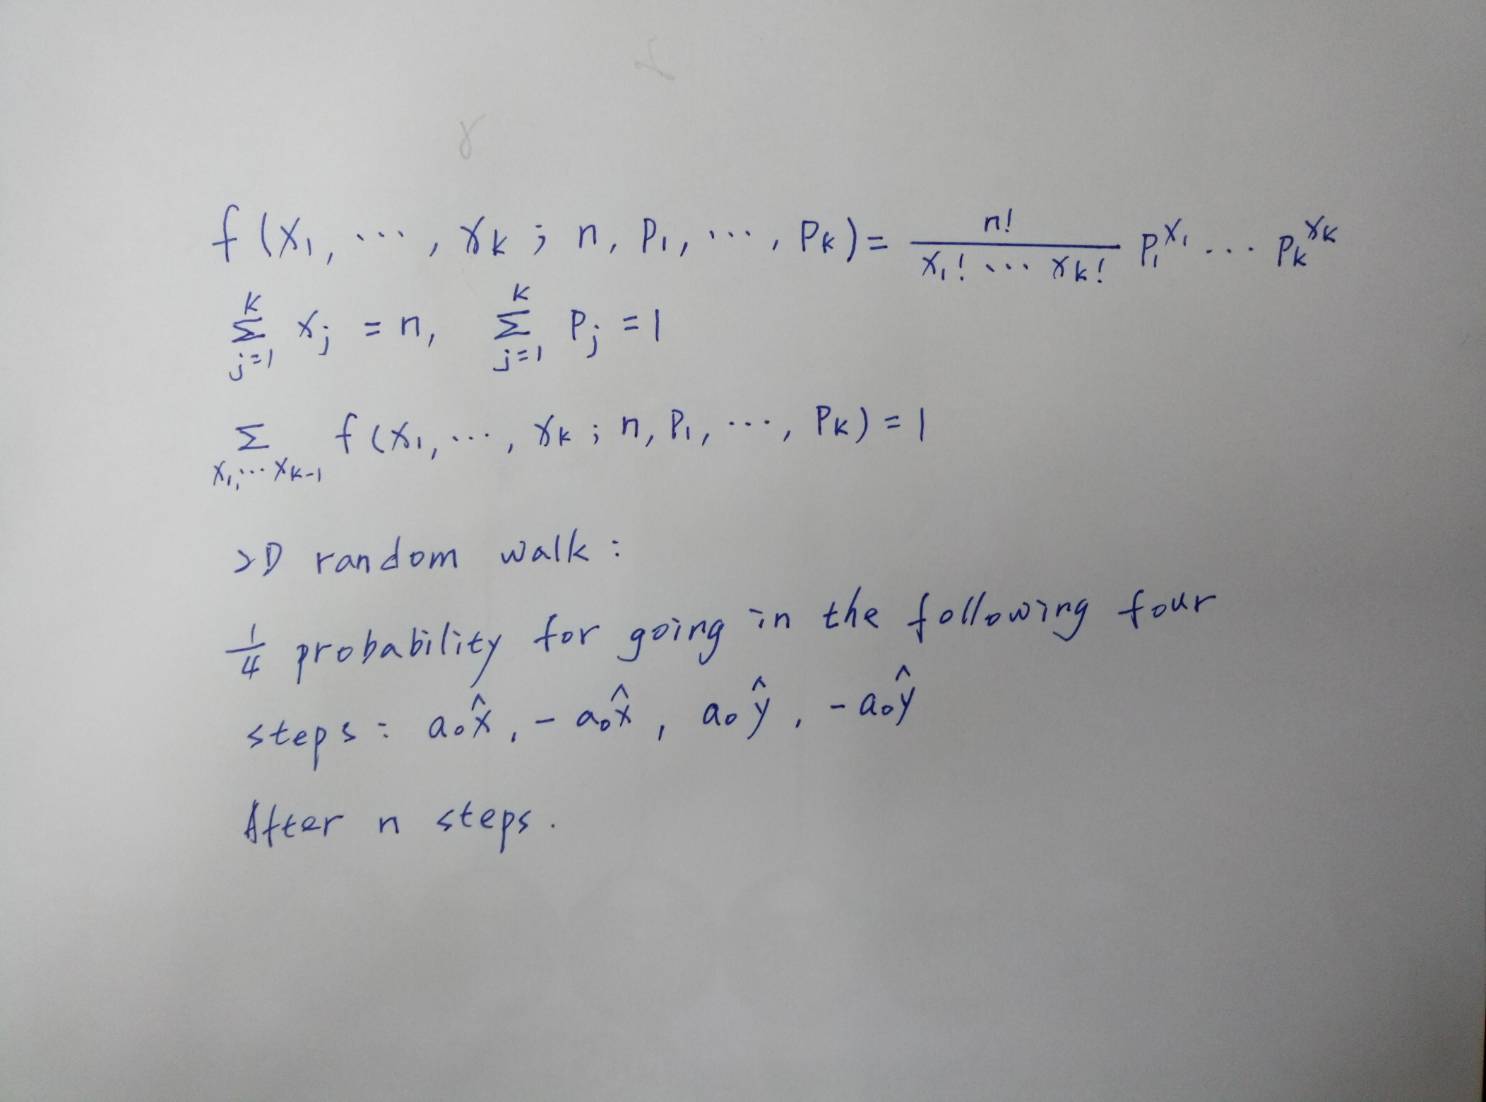 f(x₁, ⋯, xₖ; n, p₁, ⋯, pₖ) = n!/(x₁! ⋯ xₖ!) p₁^x₁ ⋯ pₖ^xₖ
∑_{j=1}^{k} xⱼ = n, ∑_{j=1}^{k} pⱼ = 1
∑_{x₁,⋯xₖ₋₁} f(x₁, ⋯, xₖ; n, p₁, ⋯, pₖ) = 1
2D random walk:
1/4 probability for going in the following four
steps: a₀x̂, -a₀x̂, a₀ŷ, -a₀ŷ
After n steps.